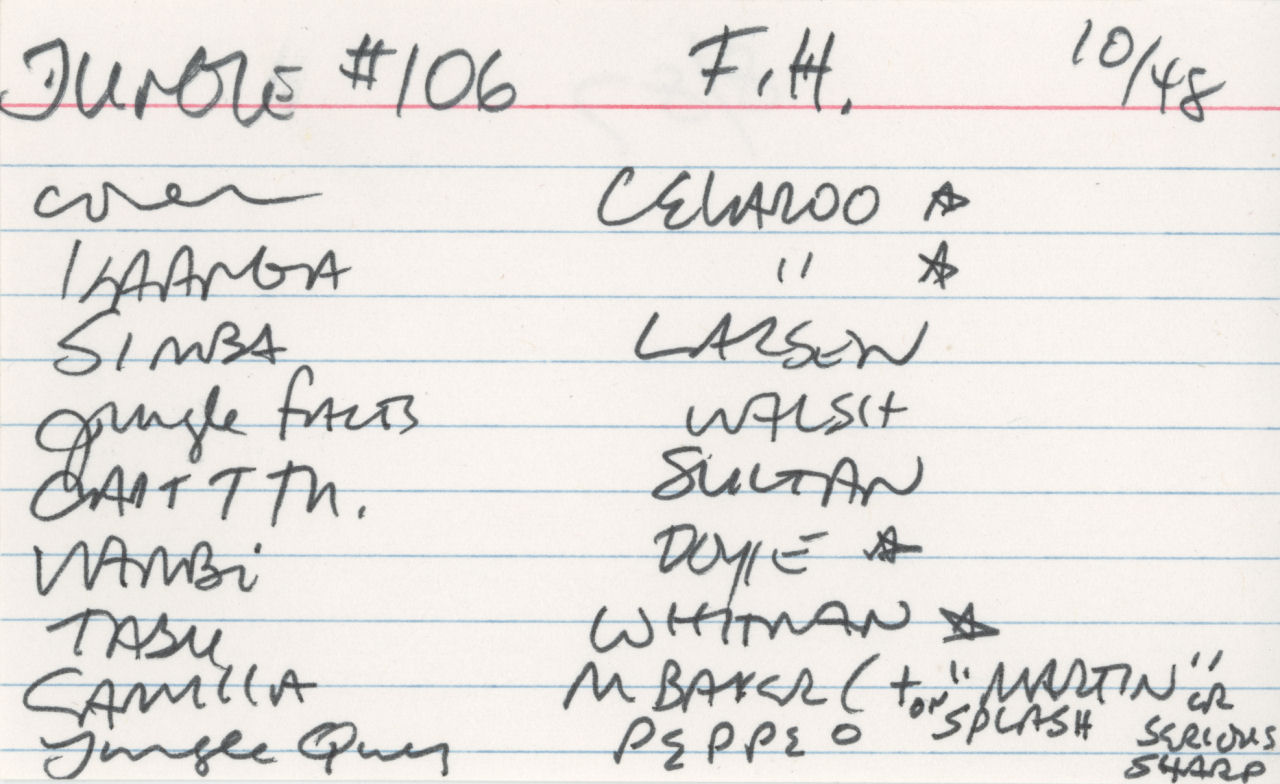 JUNGLE #106 F.H. 10/48
cover CELARDO ☆
KAANGA " ☆
SIMBA LARSEN
jungle FACTS WALSH
CAPT T Th. SULTAN
WAMBi DOYLE ☆
TABU WHITMAN ☆
CAMIllA M BAKER ( + "MARTIN" or
on SPLASH SERIOUS
Jungle Quiz PEPPE O SHARP